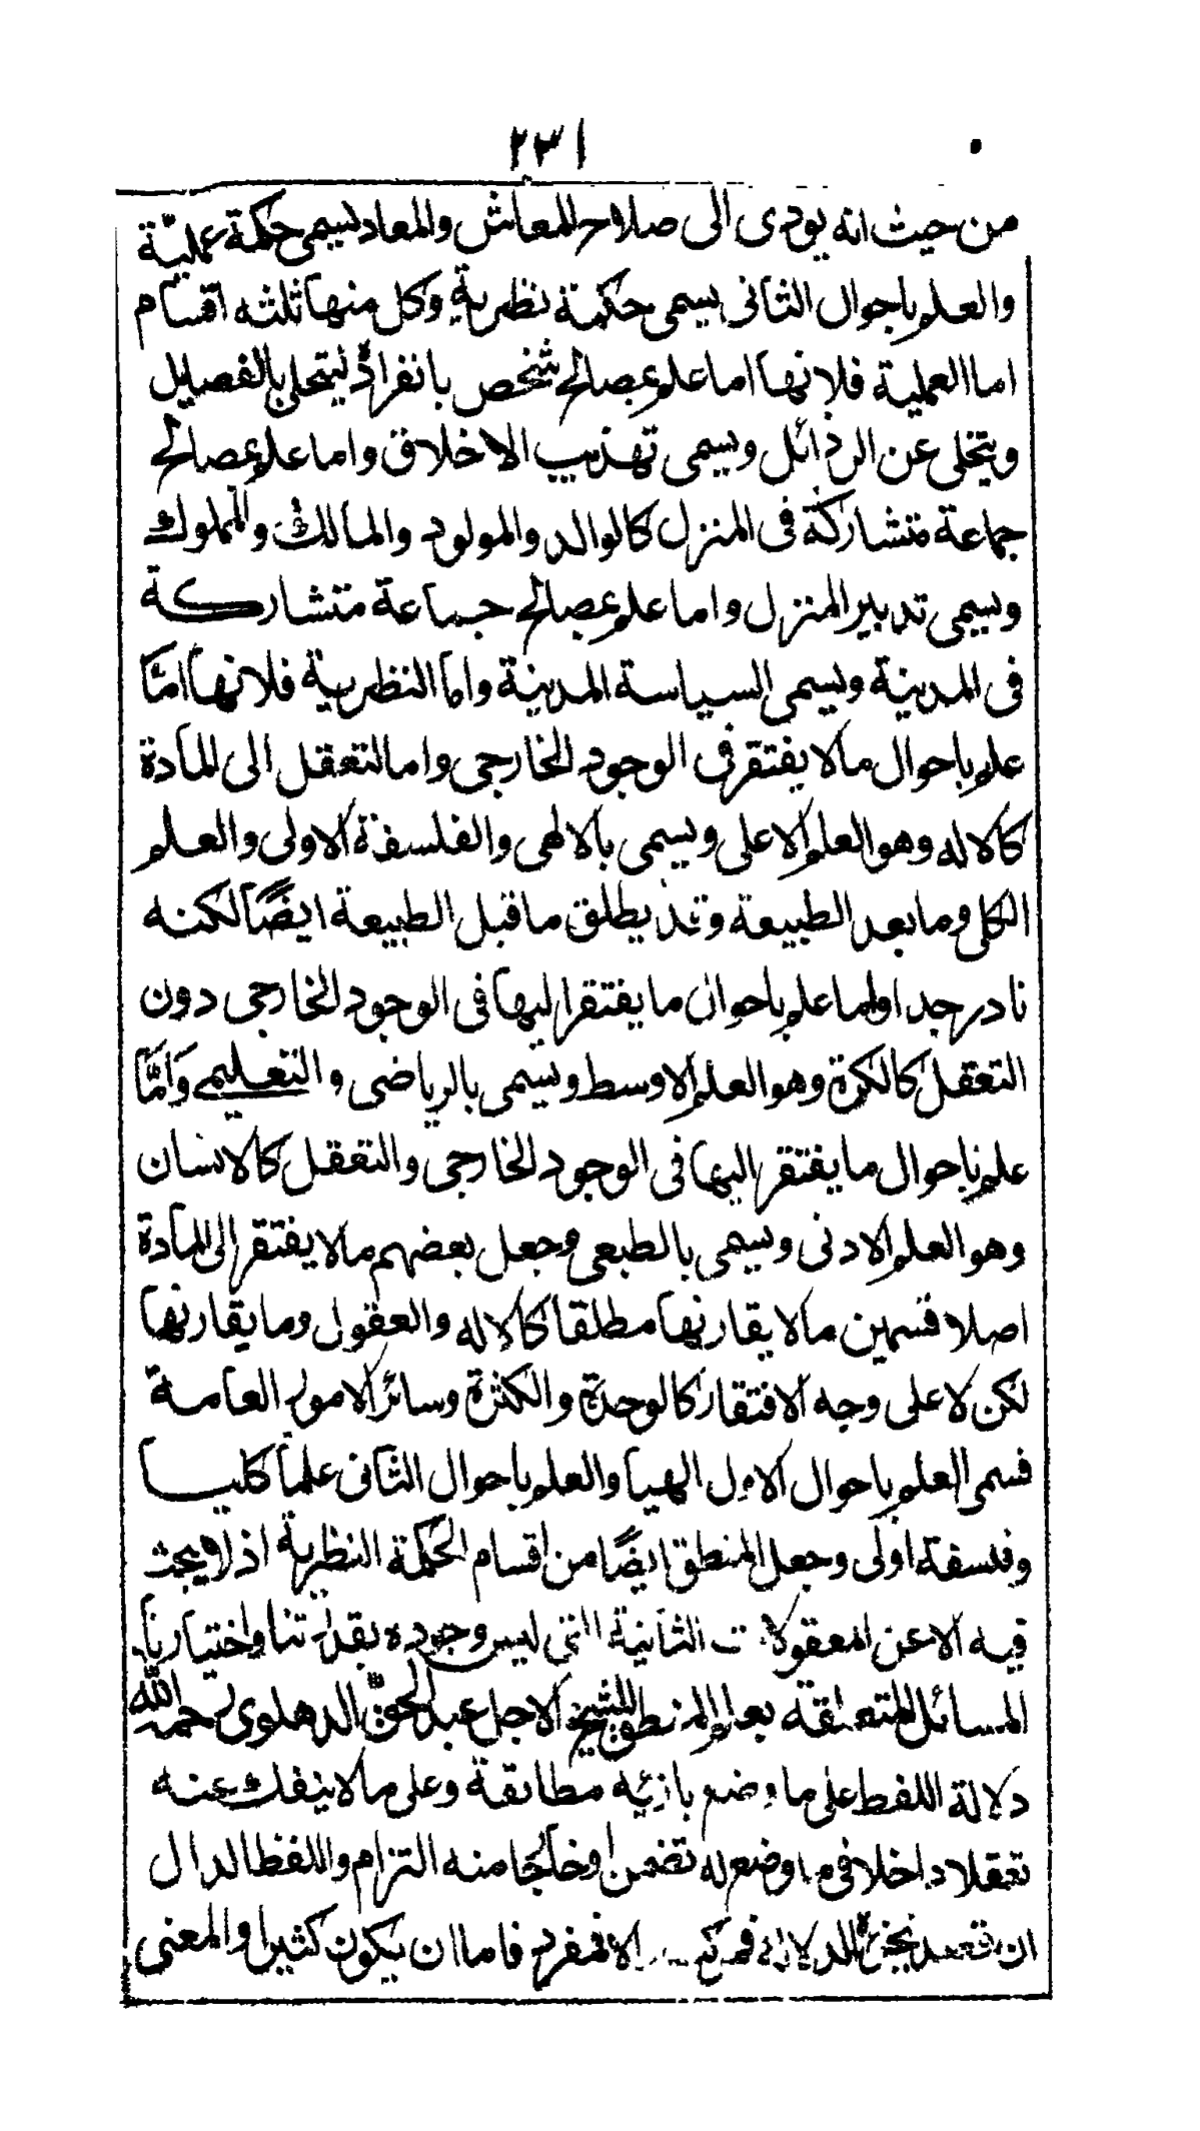 ٢٣١
من حيث انه يودى الى صلاح المعاش والمعاد يسمى حكمة عمليّة
والعلم باحوال الثانى يسمى حكمة نظرية وكل منهما ثلثه اقسام
اما العملية فلانها اما علم بمصالح شخص بانفراده ليتحلى بالفصايل
ويتخلى عن الرذائل ويسمى تهذيب الاخلاق واما علم بمصالح
جماعة متشاركة فى المنزل كالوالد والمولود والمالك والمملوك
ويسمى تدبير المنزل واما علم بمصالح جماعة متشاركة
فى المدينة ويسمى السياسة المدينة واما النظرية فلانها امّا
علم باحوال مالا يفتقر فى الوجود الخارجى واما لتعقل الى المادة
كالاله وهو العلم الاعلى ويسمى بالالهى والفلسفة الاولى والعلم
الكلى وما بعد الطبيعة وقد يطلق ما قبل الطبيعة ايضًا لكنه
نادر جدا واما علم باحوال ما يفتقر اليها فى الوجود الخارجى دون
التعقل كالكرة وهو العلم الاوسط ويسمى بالرياضى والتعليمى وَامَّا
علم باحوال ما يفتقر اليها فى الوجود الخارجى والتعقل كالانسان
وهو العلم الادنى ويسمى بالطبعى وجعل بعضهم مالا يفتقر الى المادة
اصلا قسمين مالا يقارنها مطلقا كالاله والعقول وما يقارنها
لكن لا على وجه الافتقار كالوحدة والكثرة وسائر الامور العامة
فسمى العلم باحوال الاول الهيا والعلم باحوال الثانى علما كليا
وفلسفة اولى وجعل المنطق ايضًا من اقسام الحكمة النظرية اذ لا يبحث
فيه الا عن المعقولات الثانية التى ليس وجوده بقدرتنا واختيارنا
المسائل المتعلقة بعلم المنطق للشيخ الاجل عبد الحقّ الدهلوى رحمه الله
دلالة اللفظ على ما وضع بازئيه مطابقة وعلى مالا ينفك عنه
تعقلا داخلا فى ما وضع له تضمن او خارجا منه التزام واللفظ الدال
ان قصد بجزئه الدلالة فمركب والا فمفرد فاما ان يكون كثيرا والمعنى